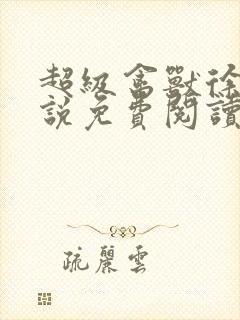 超級禽獸徐
說免費閱讀
疏麗雲